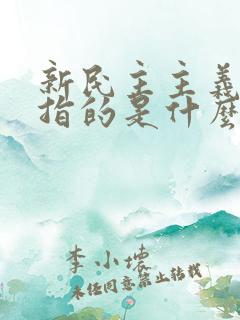 新民主主义
指的是什么
李小璟
未经同意禁止转载